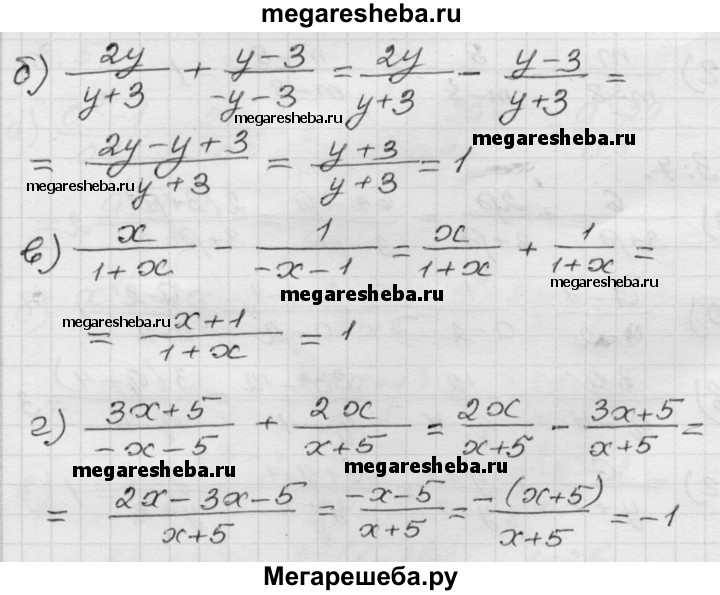 megaresheba.ru
б) 2y/(y+3) + (y-3)/(-y-3) = 2y/(y+3) - (y-3)/(y+3) =
megaresheba.ru megaresheba.ru
= (2y-y+3)/(y+3) = (y+3)/(y+3) = 1
megaresheba.ru megaresheba.ru
в) x/(1+x) - 1/(-x-1) = x/(1+x) + 1/(1+x) =
megaresheba.ru
megaresheba.ru
= (x+1)/(1+x) = 1
г) (3x+5)/(-x-5) + 2x/(x+5) = 2x/(x+5) - (3x+5)/(x+5) =
megaresheba.ru megaresheba.ru
= (2x-3x-5)/(x+5) = (-x-5)/(x+5) = -(x+5)/(x+5) = -1
Мегарешеба.ру